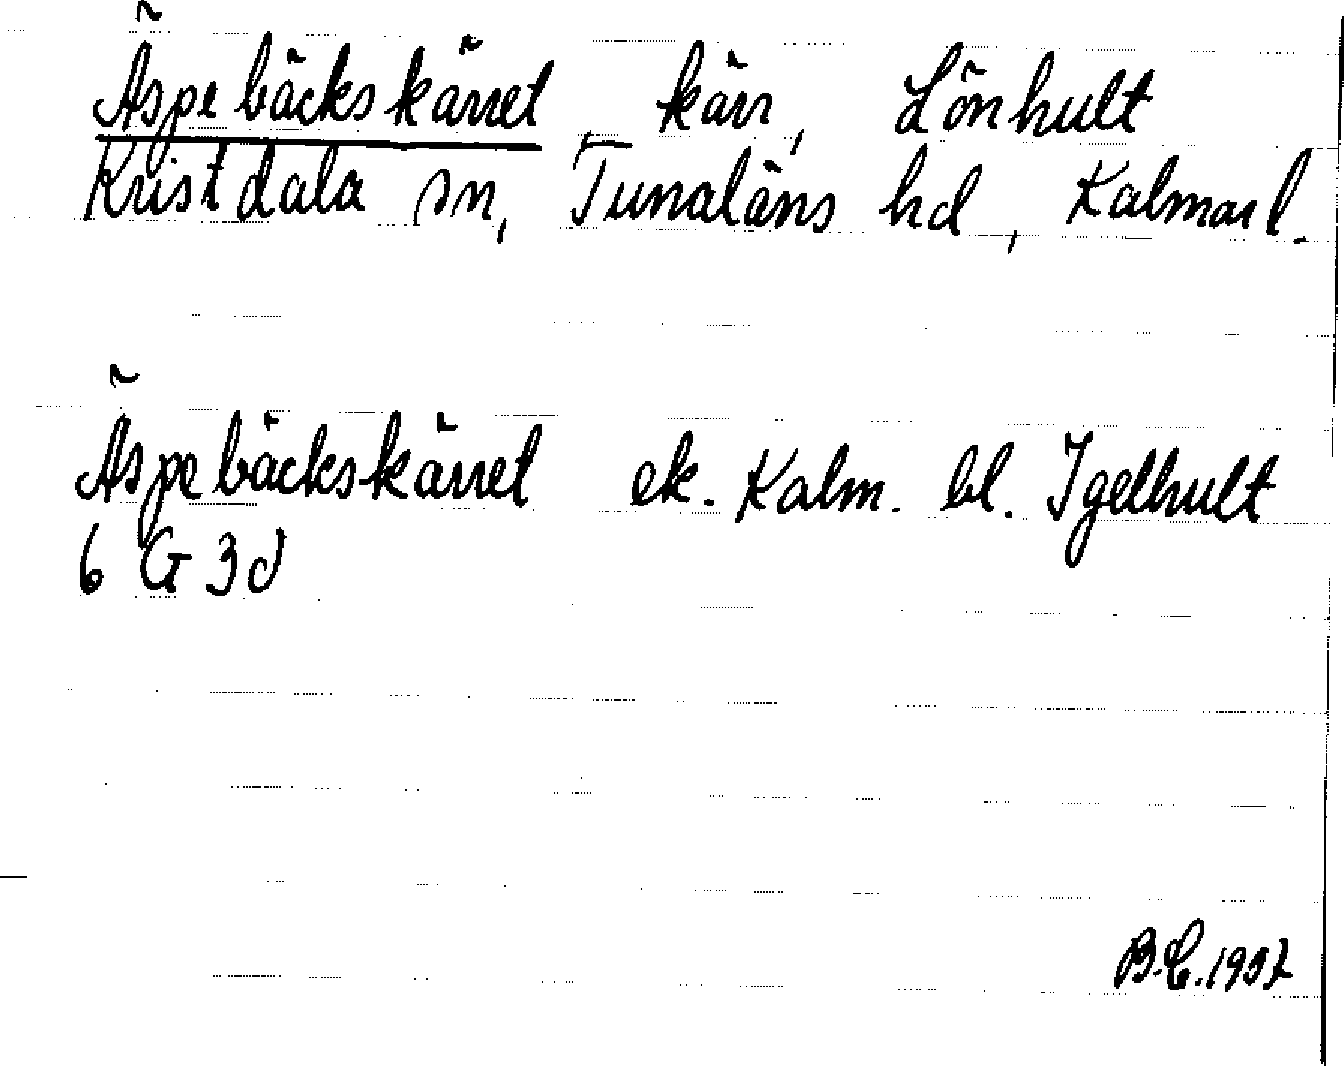 Äspebäckskärret, kärr, Lönhult
Kristdala sn, Tunaläns hd, Kalmar l.
Äspebäckskärret ek. Kalm. bl. Igelhult
6 G 3d
B.E. 1937